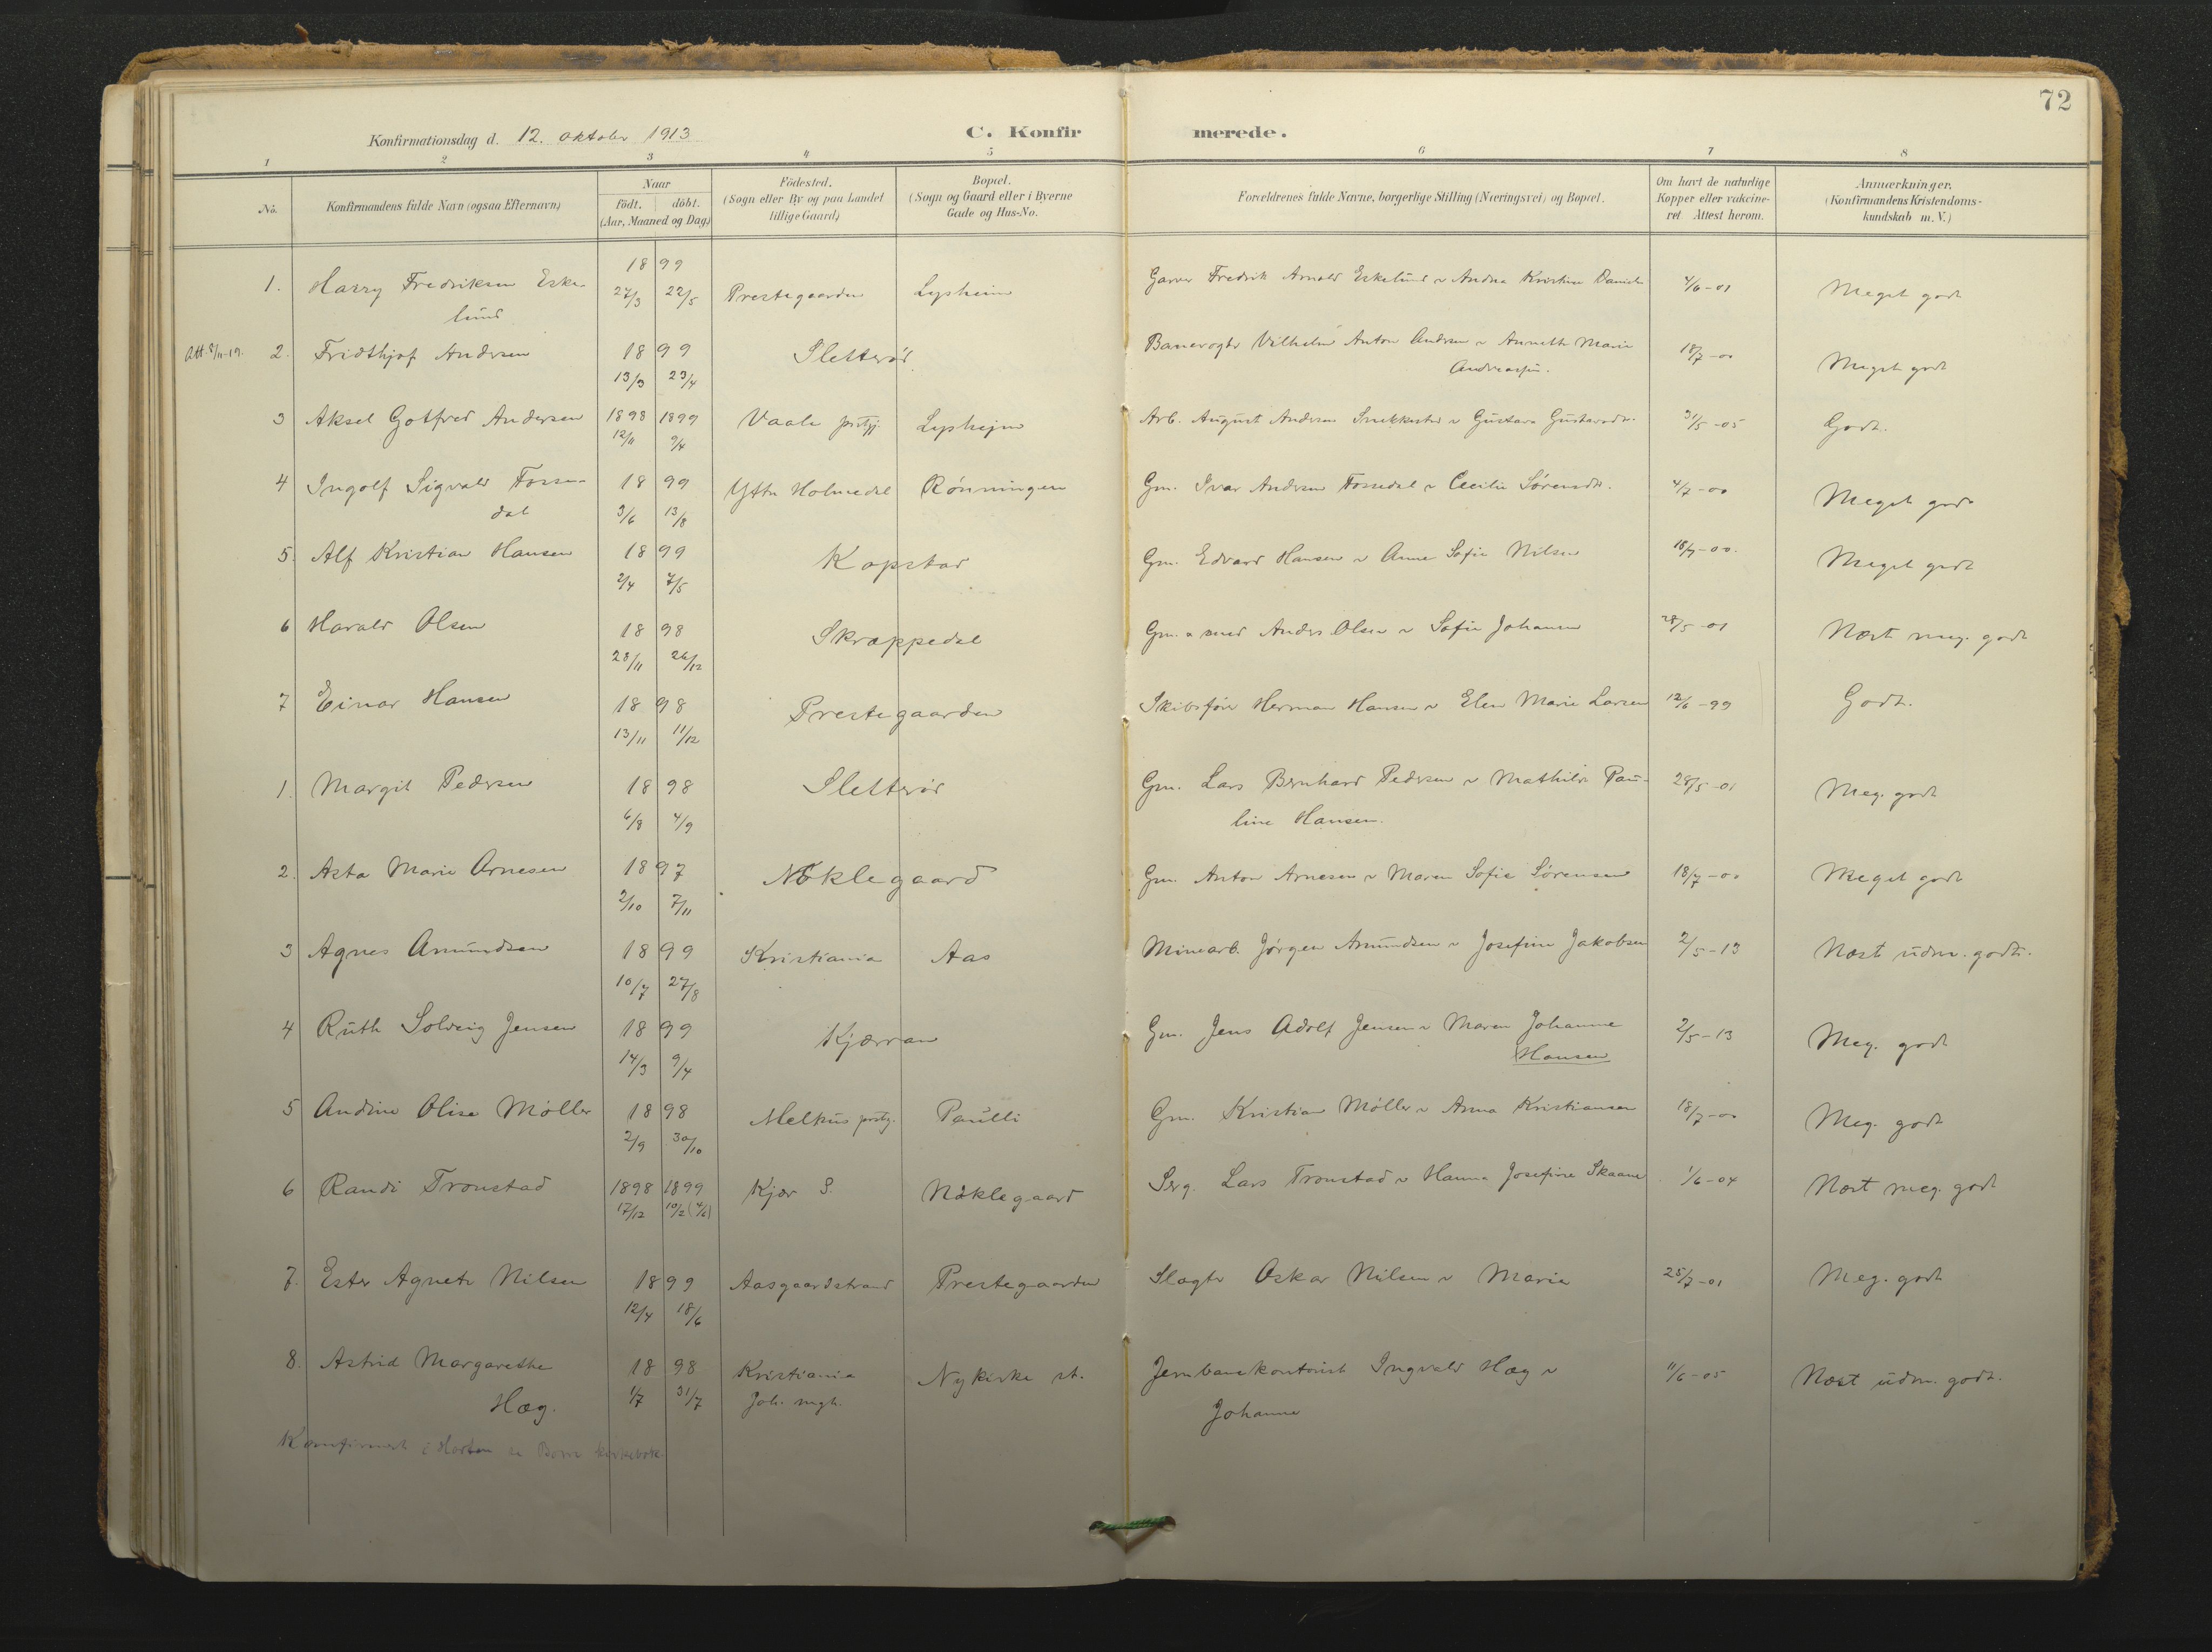 72
Konfirmationsdag d. 12. oktober 1913
C. Konfirmerede.
1 2 3 4 5 6 7 8
No.
Konfirmandens fulde Navn (ogsaa Efternavn)
Naar
född. döbt.
(Aar, Maaned og Dag)
Födested.
(Sogn eller By og paa Landet
tillige Gaard)
Bopæl.
(Sogn og Gaard eller i Byerne
Gade og Hus-No.
Forældrenes fulde Navne, borgerlige Stilling (Næringsvei) og Bopæl.
Om havt de naturlige
Kopper eller vakcine-
ret Attest herom.
Anmærkninger.
(Konfirmandens Kristendoms-
kundskab m. V.)
1. Harry Fredriksen Eske- 1899 27/3 22/5 Prestegaarden Lysheim Garver Fredrik Arnold Eskelund v Andrea Kristine 4/6-01 Meget godt
lund
Att. 8/11-19. 2. Fridthjof Andersen 1899 13/3 23/4 Sletterød Banevogter Vilhelm Anton Andersen v Annette Marie 18/7-00 Meget godt
3 Aksel Gotfred Andersen 1898 1899 12/11 9/4 Vaale prstgj. Lysheim Arb. August Andersen v Gustava 31/5-05 Godt.
4 Ingolf Sigvald Fosse- 1899 3/6 13/8 Yttre Holmedal Rönningen Gm. Ivar Andersen Fossedal v Cecilie Sörensdt. 4/7-00 Meget godt
dal
5. Alf Kristian Hansen 1899 2/4 7/5 Kopstad Gm. Edvard Hansen v Anne Sofie Nilsen 18/7-00. Meget godt
6 Harald Olsen 1898 28/11 26/12 Skrappedal Gm. Anders Olsen v Sofie Johansen 28/5-01 Næst meg. godt
7 Einar Hansen 1898 13/11 11/12 Prestegaarden Skibsfører Herman Hansen v Elen Marie Larsen 12/6-99 Godt.
1. Margit Pedersen 1898 6/8 4/9 Sletterød Gm. Lars Bernhard Pedersen v Mathilde Pau- 28/5-01 Meg. godt
line Hansen.
2. Asta Marie Arnesen 1897 2/10 7/11 Nöklegaard Gm. Anton Arnesen v Maren Sofie Sörensen 18/7-00 Meget godt
3 Agnes Amundsen 1899 10/7 27/8 Kristiania Aas Minearb. Jörgen Amundsen v Josefine Jakobsen 2/5-13 Næst udm. godt.
4 Ruth Solveig Jensen 1899 14/3 9/4 Kjærran Gm. Jens Adolf Jensen v Maren Johanne 2/5-13 Meg. godt
Hansen
5 Andine Olise Möller 1898 2/9 30/10 Paulli Gm. Kristian Möller v Anna Kristiansen 18/7-00 Meg. godt
6 Randi Tronstad 1898 1899 17/12 10/2 (4/6) Kjær S. Nöklegaard Serg. Lars Tronstad v Hanna Josefine Skaane 1/6-04 Næst meg. godt
7. Ester Agnete Nilsen 1899 12/4 18/6 Aasgaardstrand Prestegaarden Slagter Oskar Nilsen v Marie 25/7-01 Meg. godt
8. Astrid Margarethe 1898 1/7 31/7 Kristiania Nykirke st. Jernbanekontorist Ingvald Hæg v 11/6-05 Næst udm. godt.
Hæg. Joh. mgh. Johanne
Konfirmert i Horten se Borre kirkebok.